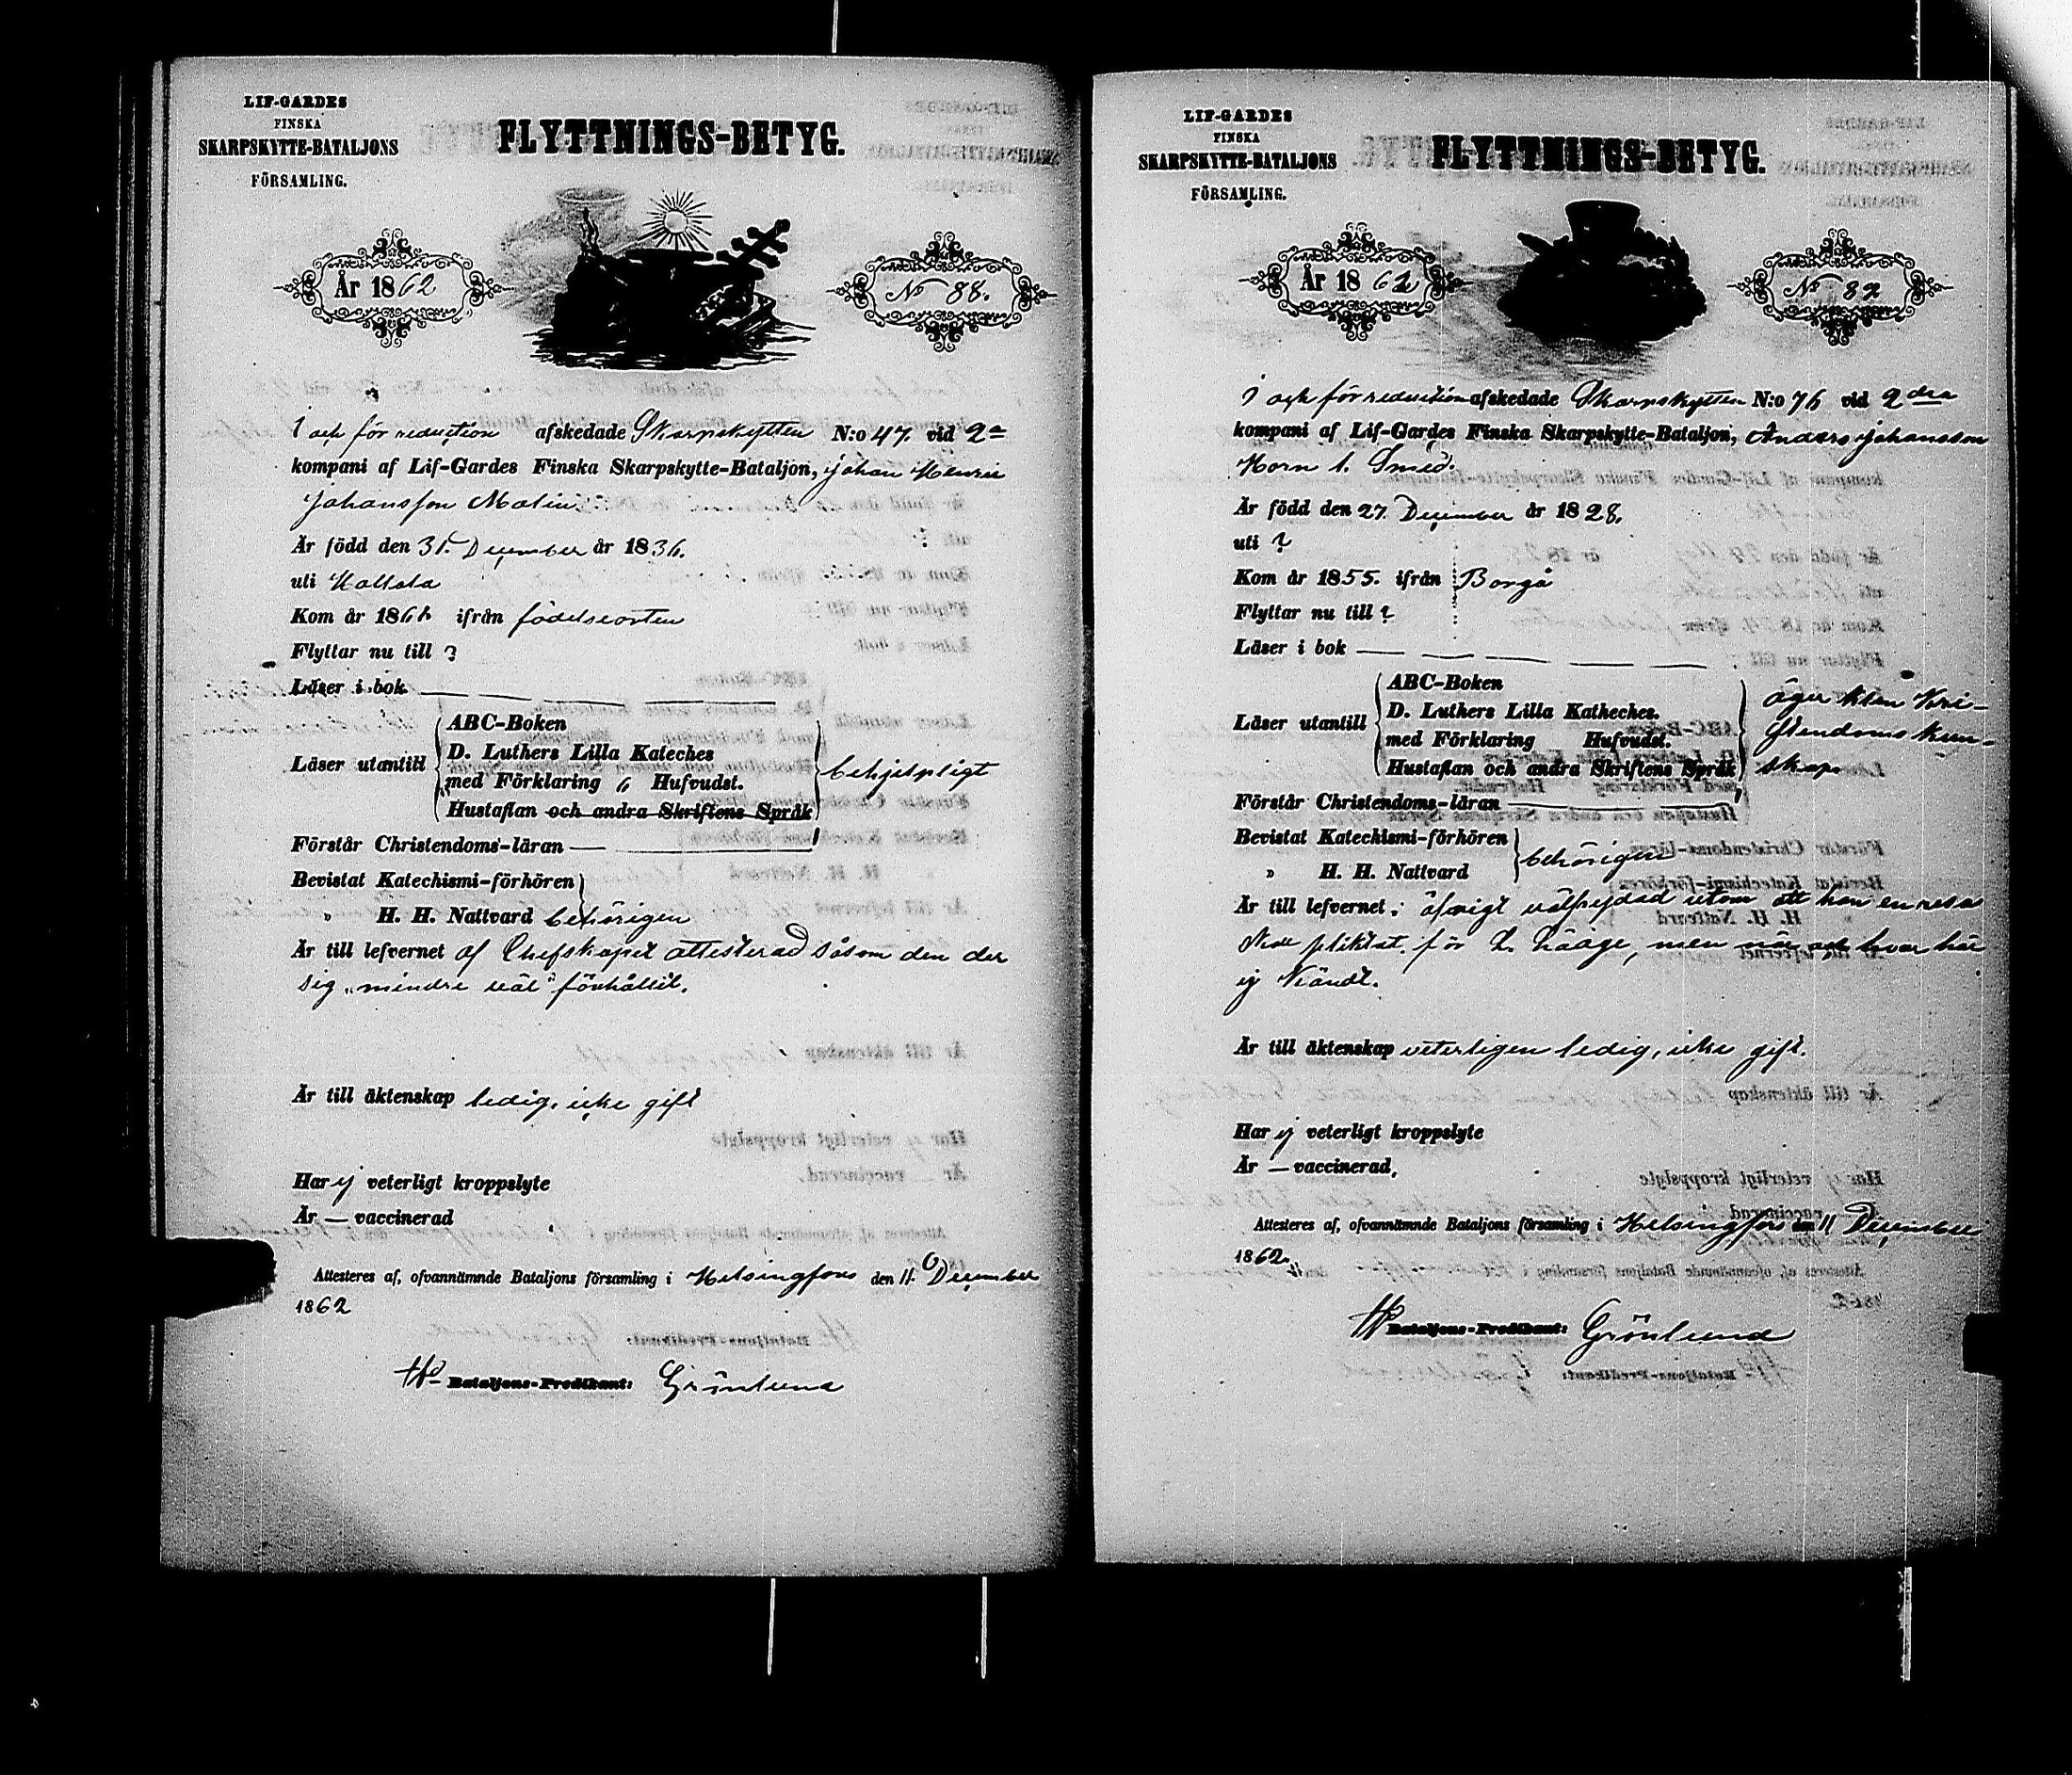 LIF-GARDES
FINSKA
SKARPSKYTTE-BATALJONS
FÖRSAMLING.
FLYTTNINGS-BETYG.
År 1862
No 88.
I och för reduction afskedade Skarpskytten N:o 47. vid 2a
kompani af Lif-Gardes Finska Skarpskytte-Bataljon, Johan Henric
Johansson Malin
Är född den 31. December år 1836.
uti
Kom år 186 ifrån födelseorten
Flyttar nu till ?
Läser i bok
Läser utantill
ABC-Boken
D. Luthers Lilla Kateches
med Förklaring 6 Hufvudst.
Hustaflan och andra Skriftens Språk
behjelpligt
Förstår Christendoms-läran
Bevistat Katechismi-förhören
" H. H. Nattvard behörigen
Är till lefvernet af Chefskapet attesterad såsom den der
sig „mindre väl" förhållit.
Är till äktenskap ledig, icke gift
Har ej veterligt kroppslyte
Är — vaccinerad
Attesteres af, ofvannämnde Bataljons församling i Helsingfors den 11. December
1862
Bataljons-Predikant: Grönlund
LIF-GARDES
FINSKA
SKARPSKYTTE-BATALJONS
FÖRSAMLING.
FLYTTNINGS-BETYG.
År 1862
No 89
I och för reduction afskedade Skarpskytten N:o 76 vid 2dra
kompani af Lif-Gardes Finska Skarpskytte-Bataljon, Anders Johansson
Horn l. Smed.
Är född den 27. December år 1828.
uti ?
Kom år 1855. ifrån Borgå
Flyttar nu till ?
Läser i bok
Läser utantill
ABC-Boken
D. Luthers Lilla Katheches.
med Förklaring Hufvudst.
Hustaflan och andra Skriftens Språk
äger klen Kri-
stendoms kun-
skap
Förstår Christendoms-läran
Bevistat Katechismi-förhören
" H. H. Nattvard
behörigen
Är till lefvernet: öfrigt välfrejdad utom att han en resa
pliktat för L. hääge, men när och hvar här
ej kändt.
Är till äktenskap veterligen ledig, icke gift.
Har ej veterligt kroppslyte
Är — vaccinerad,
Attesteres af, ofvannämnde Bataljons församling i Helsingfors den 11 December
1862.
Bataljons-Predikant: Grönlund